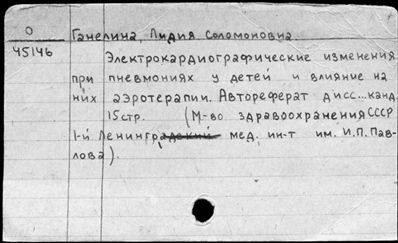 О Ганелина, Лидия Соломоновна.
45146 Электрокардиографические изменения
при пневмониях у детей и влияние на
них аэротерапии. Автореферат дисс...канд.
15стр. (М-во здравоохранения СССР
1-й Ленинградский мед. ин-т им. И.П. Пав-
лова).